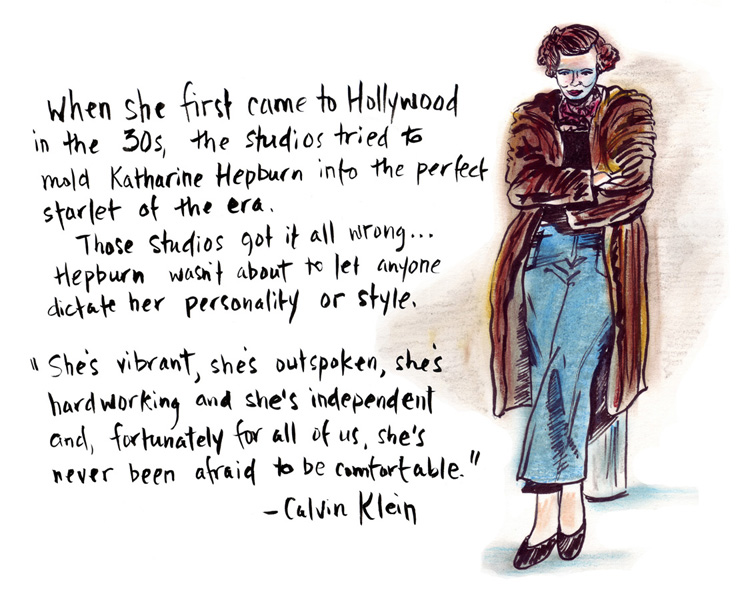 When she first came to Hollywood
in the 30s, the studios tried to
mold Katharine Hepburn into the perfect
starlet of the era.
Those studios got it all wrong...
Hepburn wasn't about to let anyone
dictate her personality or style.
"She's vibrant, she's outspoken, she's
hardworking and she's independent
and, fortunately for all of us, she's
never been afraid to be comfortable."
-Calvin Klein